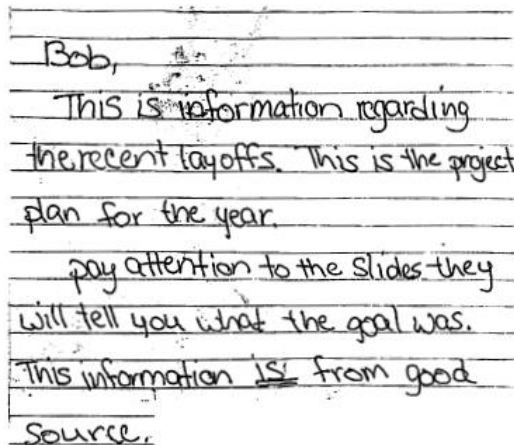 Bob,
This is information regarding
the recent layoffs. This is the project
plan for the year.
pay attention to the slides they
will tell you what the goal was.
This information is from good
source.